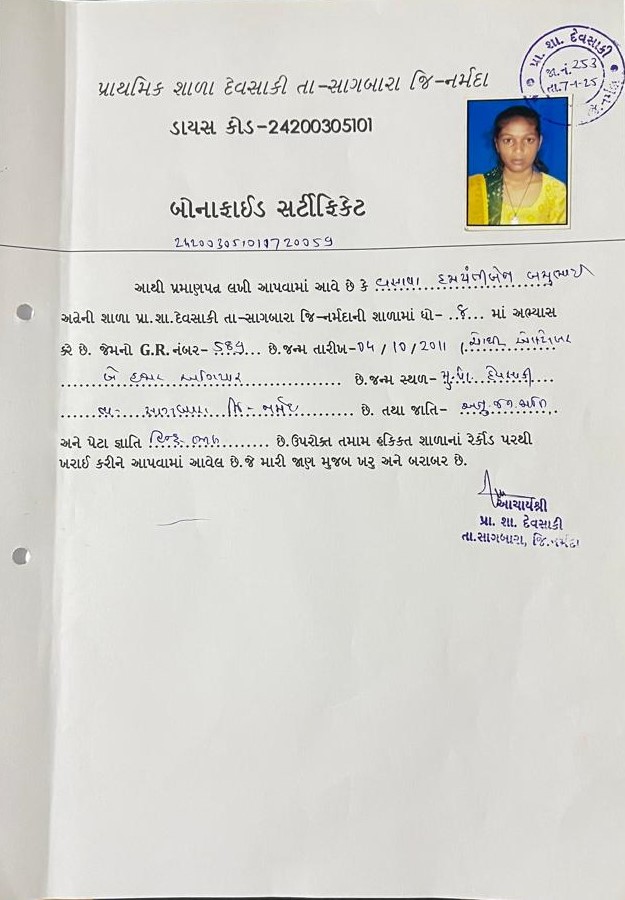 પ્રા. શા. દેવસાકી
જા.નં. 253
તા. 7-1-25
પ્રાથમિક શાળા દેવસાકી તા-સાગબારા જિ-નર્મદા
ડાયસ કોડ-24200305101
બોનાફાઈડ સર્ટીફિકેટ
242003051011720059
આથી પ્રમાણપત્ર લખી આપવામાં આવે છે કે વસાવા દમયંતીબેન
અત્રેની શાળા પ્રા.શા.દેવસાકી તા-સાગબારા જિ-નર્મદાની શાળામાં ધો- ..8... માં અભ્યાસ
કરે છે. જેમનો G.R. નંબર- 589... છે.જન્મ તારીખ-04 / 10 / 2011 (ચોથી ઓક્ટોબર
બે હજાર અગિયાર ............ છે.જન્મ સ્થળ- મુ.પો. દેવસાકી
તા- સાગબારા જિ- નર્મદા ......... છે. તથા જાતિ- અનુ.જન.જાતિ.
અને પેટા જ્ઞાતિ હિન્દુ- ભીલ ......... છે.ઉપરોક્ત તમામ હકિકત શાળાનાં રેર્કોડ પરથી
ખરાઈ કરીને આપવામાં આવેલ છે.જે મારી જાણ મુજબ ખરુ અને બરાબર છે.
આચાર્યશ્રી
પ્રા. શા. દેવસાકી
તા.સાગબારા, જિ.નર્મદા